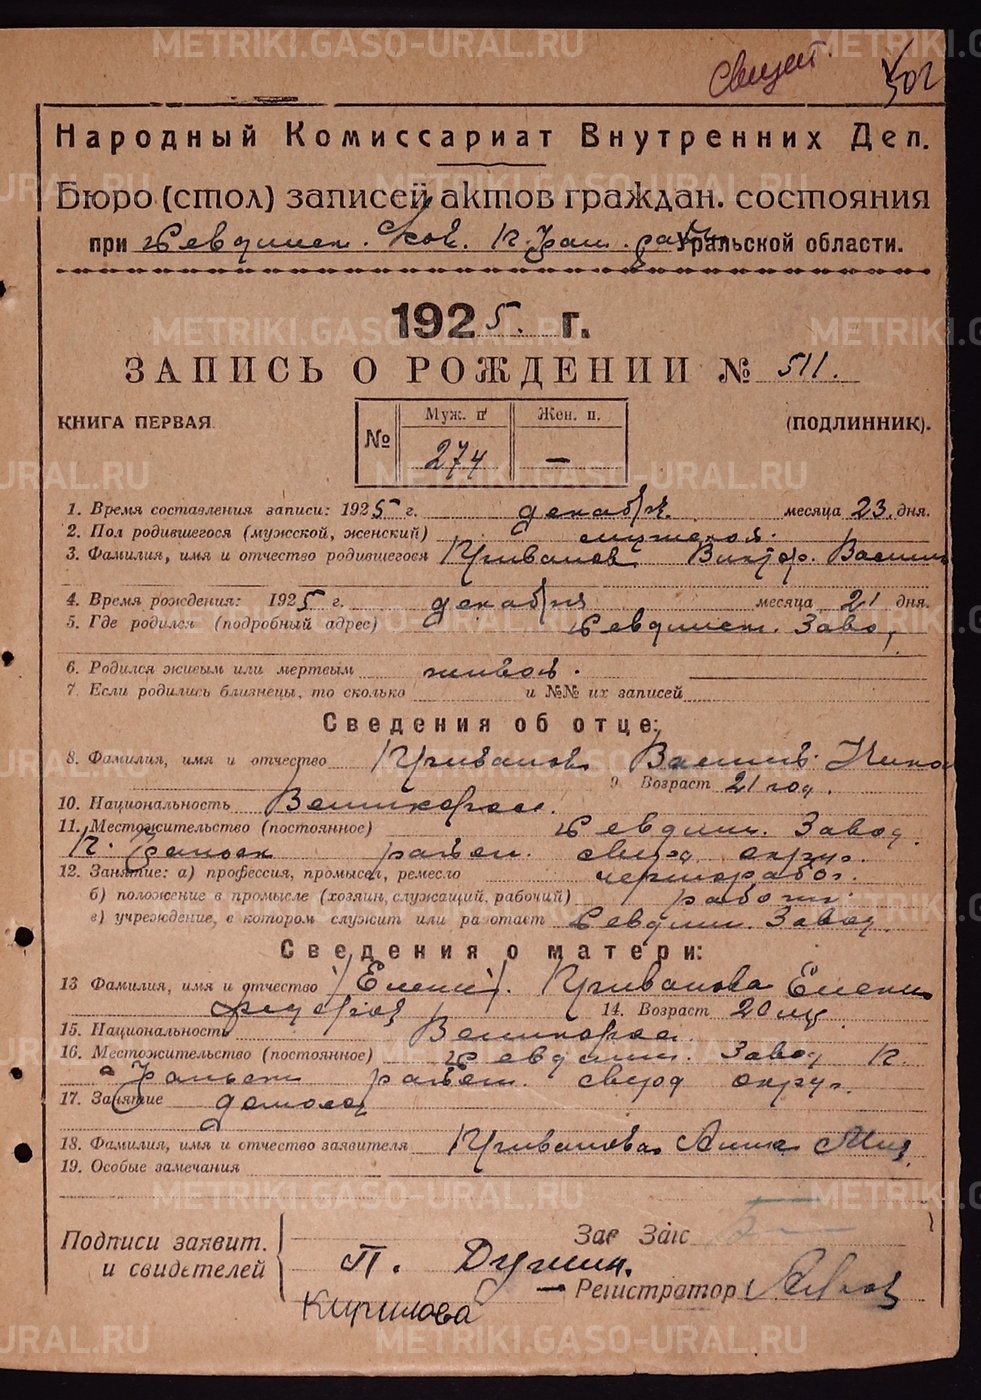 METRIKI.GASO-URAL.RU
Свидет. 502
Народный Комиссариат Внутренних Дел.
Бюро (стол) записей актов граждан. состояния
при Ревдинск. Уральской области.
1925. г.
ЗАПИСЬ О РОЖДЕНИИ № 511.
КНИГА ПЕРВАЯ.
(ПОДЛИННИК).
№ Муж. п. Жен. п.
274 —
1. Время составления записи: 1925 г. декабря месяца 23. дня.
2. Пол родившегося (мужской, женский) мужской.
3. Фамилия, имя и отчество родившегося Виктор. Васил
4. Время рождения: 1925 г. декабря месяца 21 дня.
5. Где родился (подробный адрес) Ревдинск. Заво
6. Родился живым или мертвым живой.
7. Если родились близнецы, то сколько и №№ их записей
Сведения об отце:
8. Фамилия, имя и отчество Васил. Нико
9. Возраст 21 год.
10. Национальность Великорос.
11. Местожительство (постоянное) Ревдин. Завод.
район. сверд округ.
12. Занятие: а) профессия, промысел, ремесло чернорабоч.
б) положение в промысле (хозяин, служащий, рабочий) рабочий
в) учреждение, в котором служит или работает Ревдин. Завод.
Сведения о матери:
13 Фамилия, имя и отчество Елена
14. Возраст 20 лет.
15. Национальность Великорос.
16. Местожительство (постоянное) Ревдин. Завод
район. сверд округ.
17. Занятие домохоз
18. Фамилия, имя и отчество заявителя Анна
19. Особые замечания
Подписи заявит.
и свидетелей
П.
Кирилова
Зав Загс
Регистратор